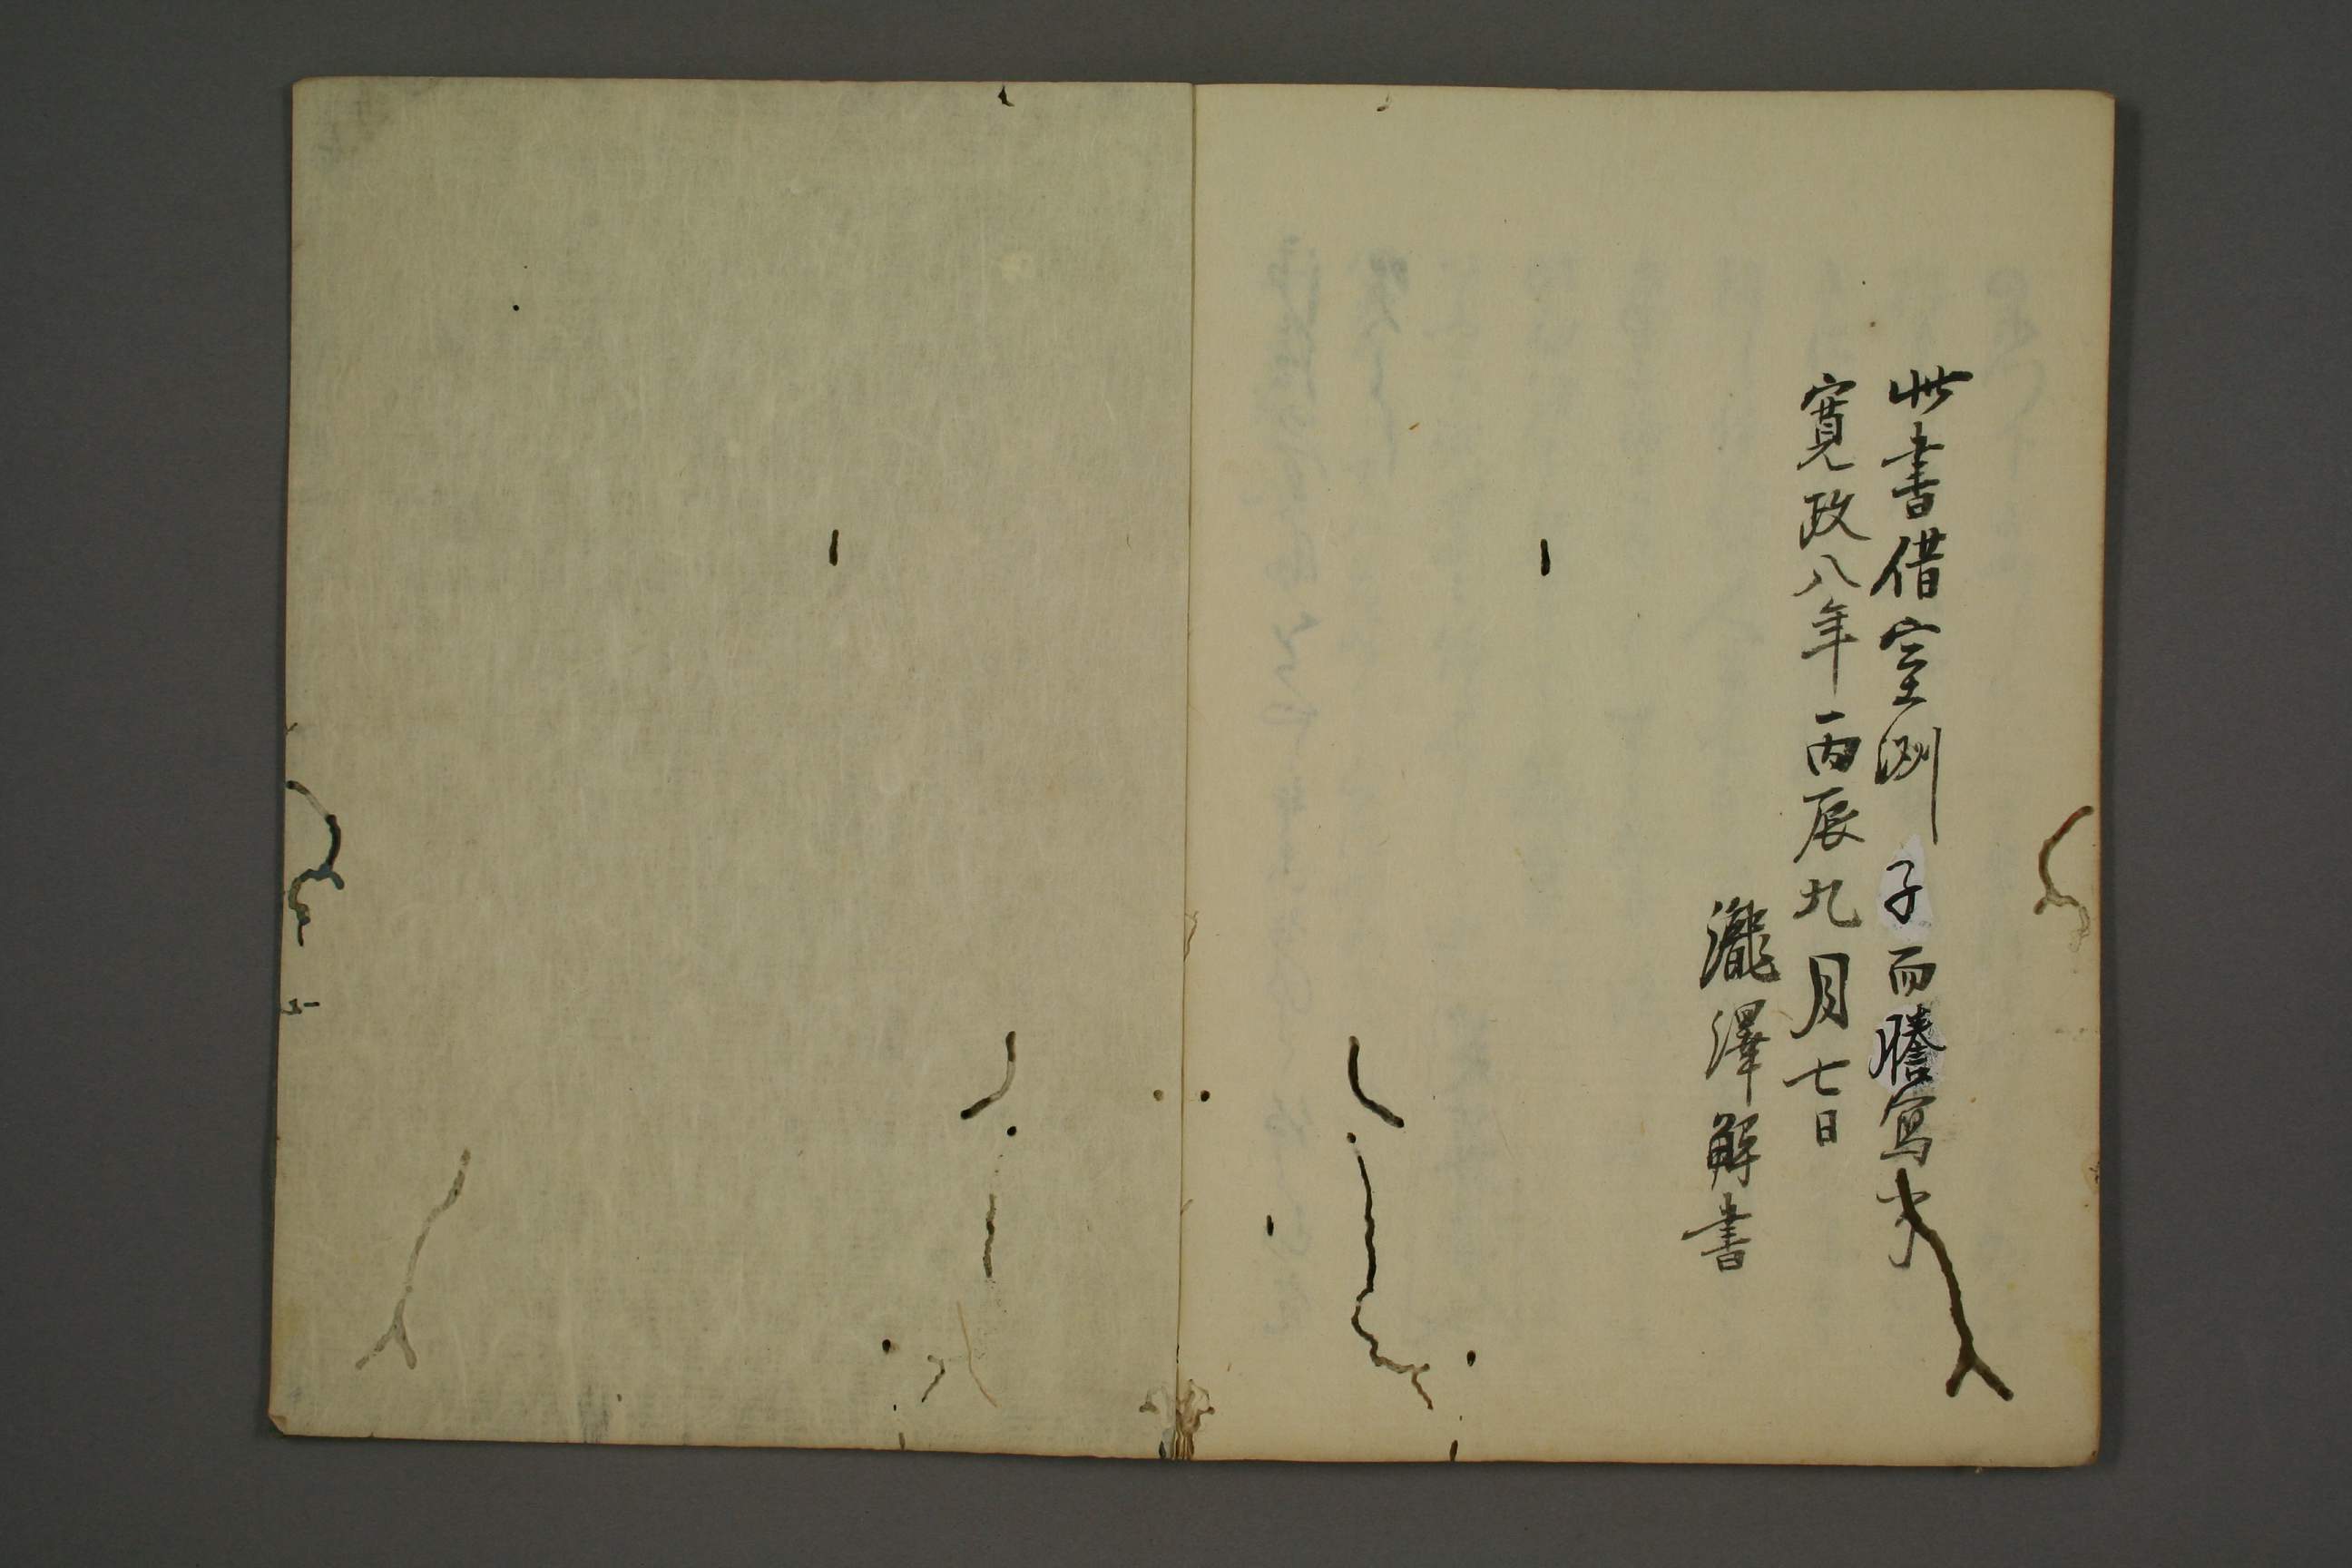 此書借室洌子而謄寫才
寛政八年丙辰九月七日
瀧澤解書